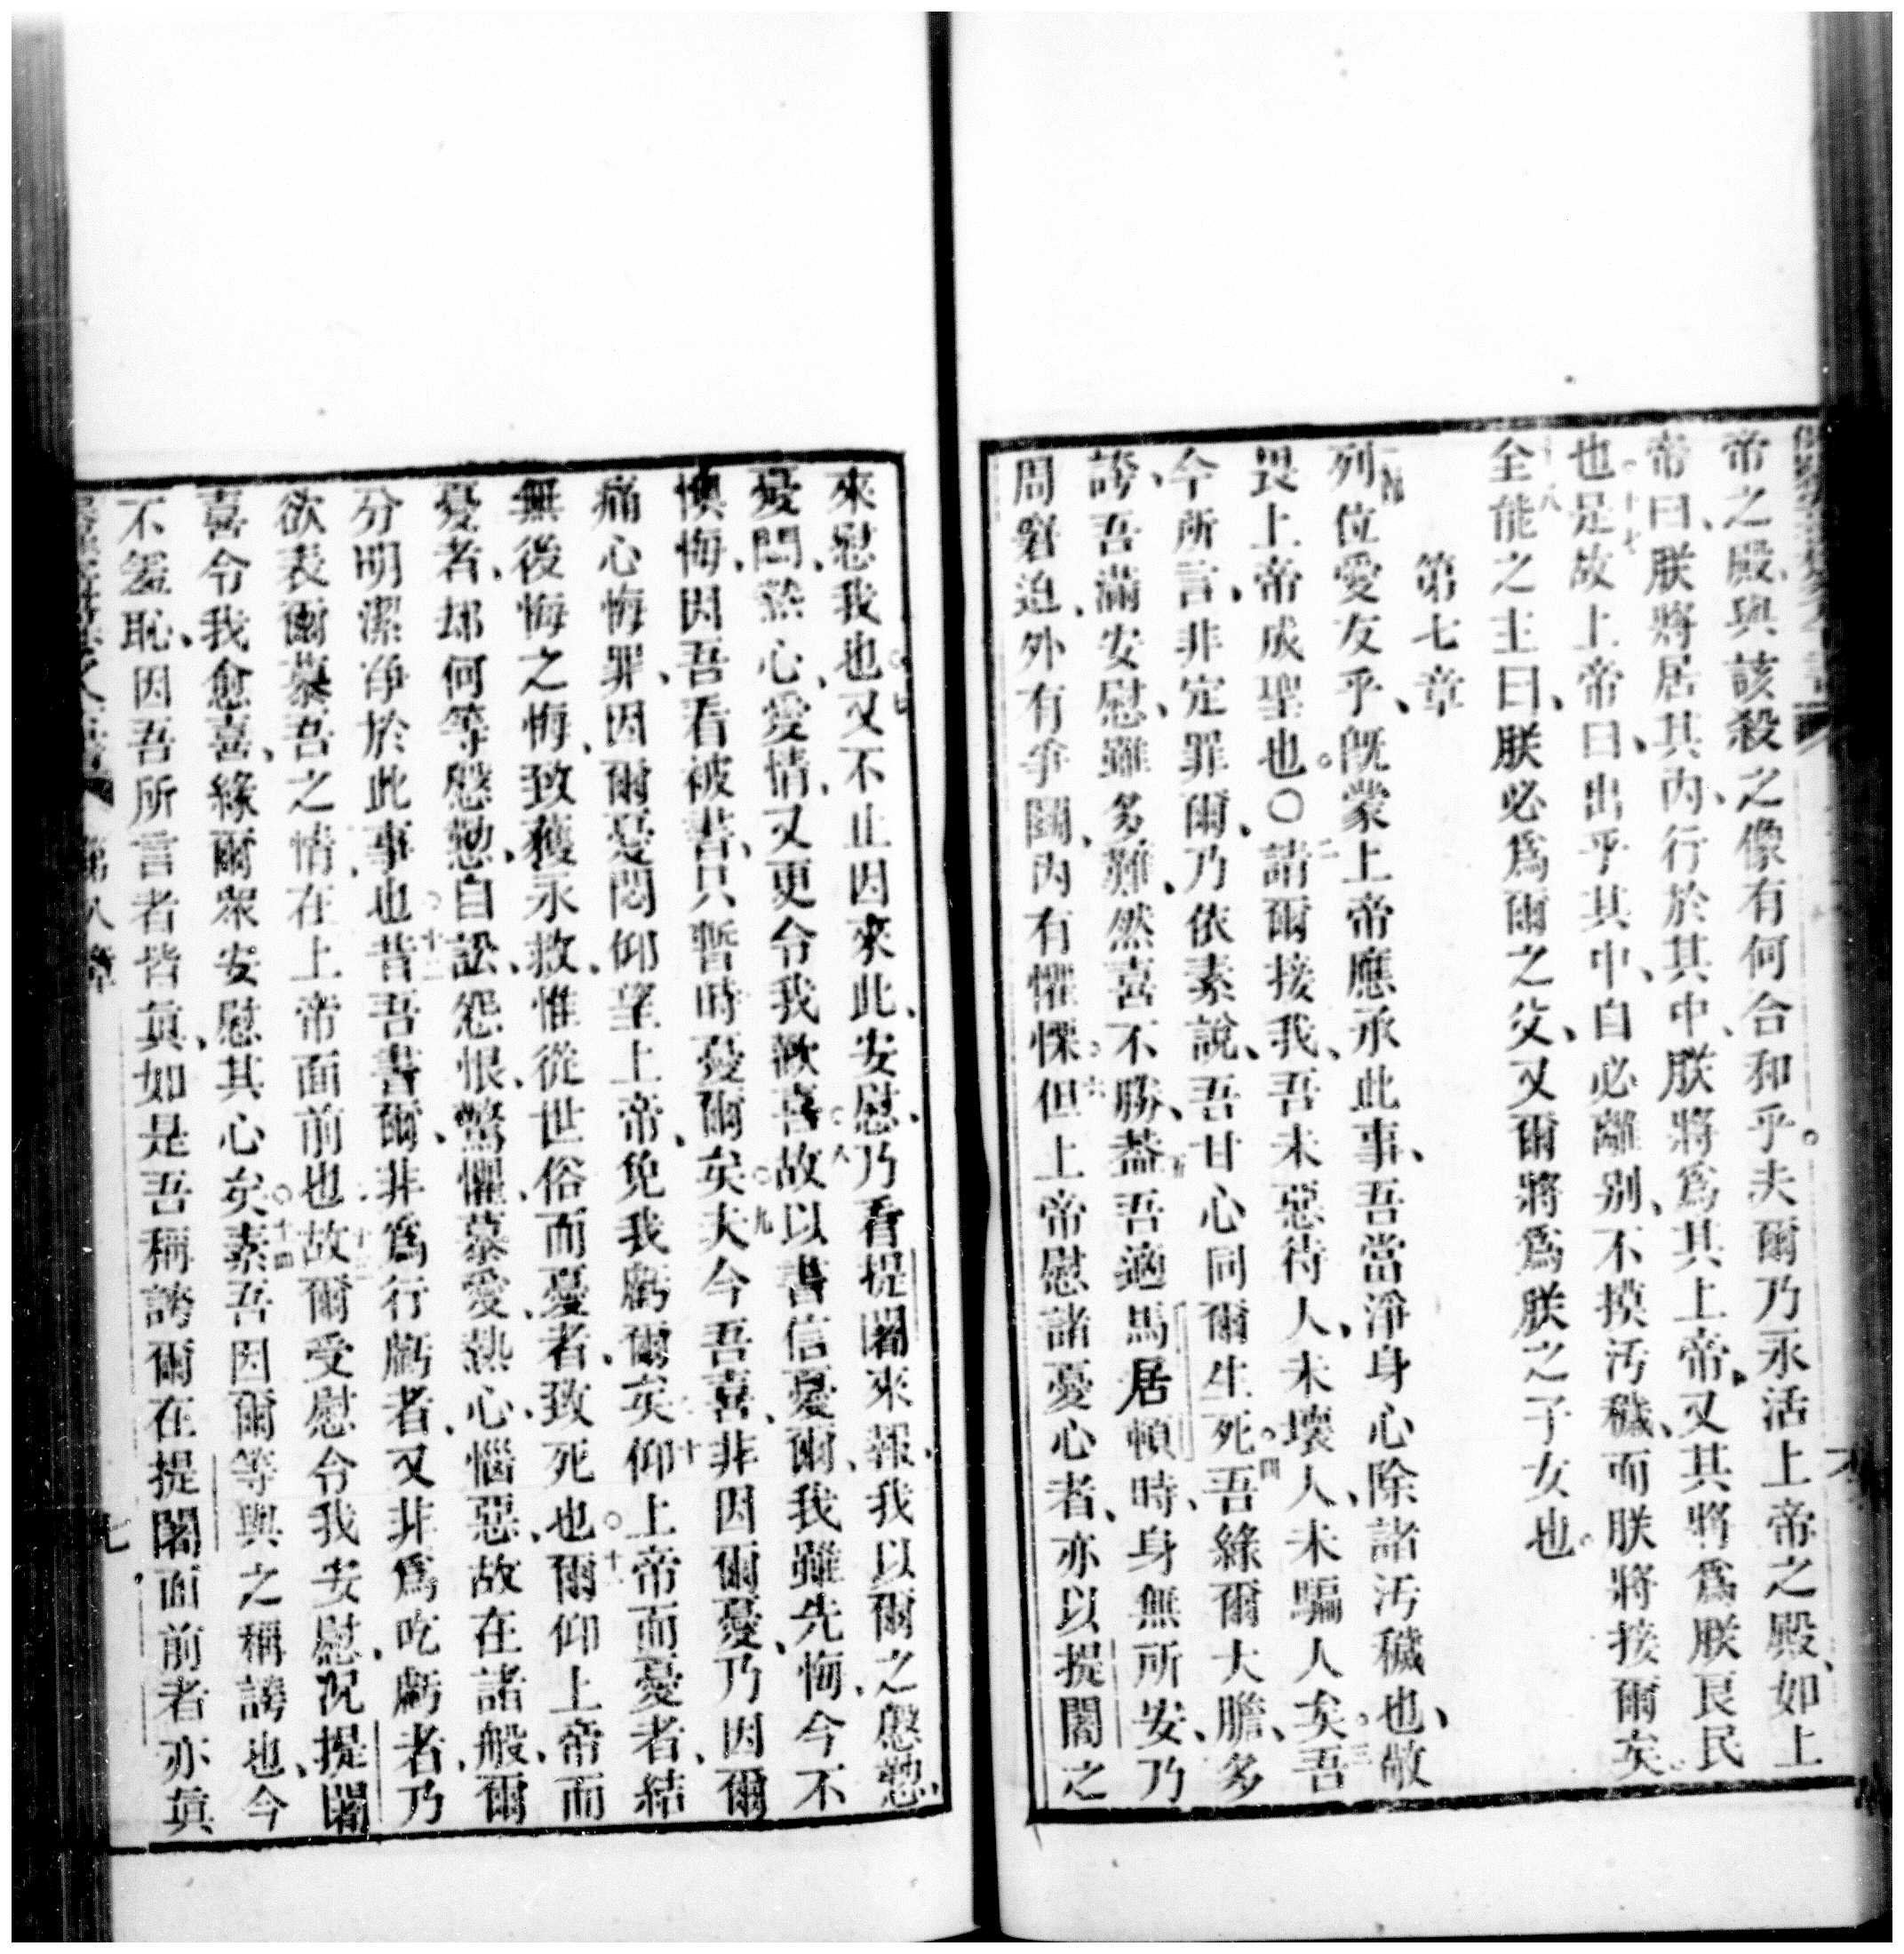 帝之殿、與該殺之像有何合和乎。夫爾乃永活上帝之殿、如上
帝曰、朕將居其內、行於其中、朕將爲其上帝、又其將爲朕良民
也。十七是故上帝曰、出乎其中、自必離別、不摸汚穢、而朕將接爾矣。
十八全能之主曰、朕必爲爾之父、又爾將爲朕之子女也。
第七章
列位愛友乎、既蒙上帝應承此事、吾當淨身心除諸汚穢也、敬
畏上帝成聖也。〇二請爾接我、吾未惡待人、未壞人、未騙人矣。三吾
今所言、非定罪爾、乃依素說、吾甘心同爾生死。四吾緣爾大膽、多
誇、吾滿安慰、雖多難、然喜不勝、五蓋吾適馬居頓時、身無所安、乃
周窘迫、外有爭鬬、內有懼慄。六但上帝慰諸憂心者、亦以提闍之
來慰我也。七又不止因來此、安慰、乃看提闍來報、我以爾之慇懃、
憂悶、熱心、愛情、又更令我歡喜。八故以書信憂爾、我雖先悔、今不
懊悔、因吾看被書、只暫時憂爾矣。九夫今吾喜、非因爾憂、乃因爾
痛心悔罪、因爾憂悶仰望上帝、免我虧爾矣。十仰上帝而憂者、結
無後悔之悔、致獲永救、惟從世俗而憂者、致死也。十一爾仰上帝而
憂者、却何等慇懃、自訟、怨恨、驚懼、慕愛、熱心、惱惡、故在諸般、爾
分明潔淨於此事也。十二昔吾書爾、非爲行虧者、又非爲吃虧者、乃
欲表爾慕吾之情、在上帝面前也。十三故爾受慰令我安慰、況提闍
喜令我愈喜、緣爾衆安慰其心矣。十四素吾因爾等與之稱誇也、今
不羞恥、因吾所言者皆眞、如是吾稱誇爾在提闍面前者亦眞
第八章
七